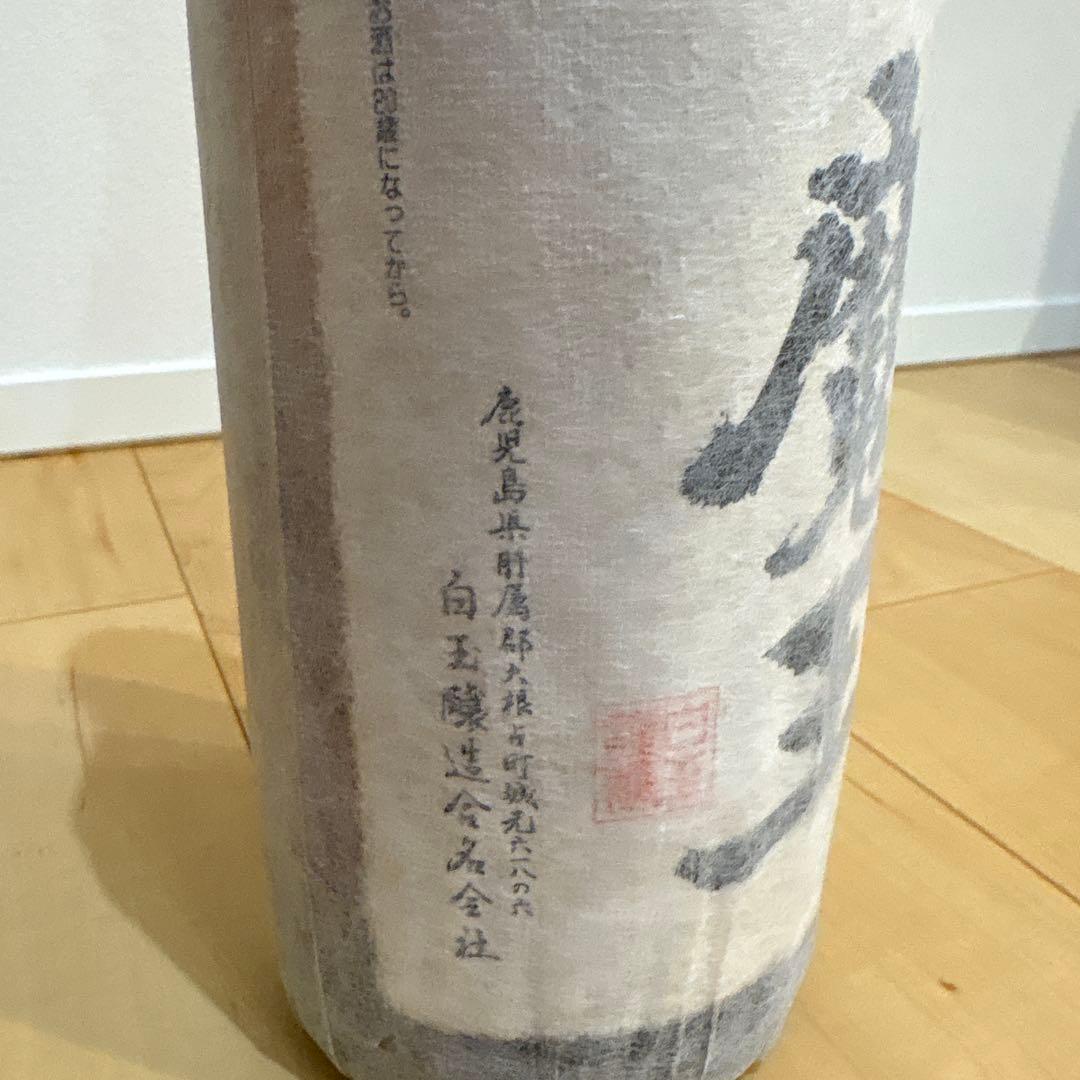 魔王
鹿児島県肝属郡大根占町城元六一八の六
白玉醸造合名会社
お酒は20歳になってから。